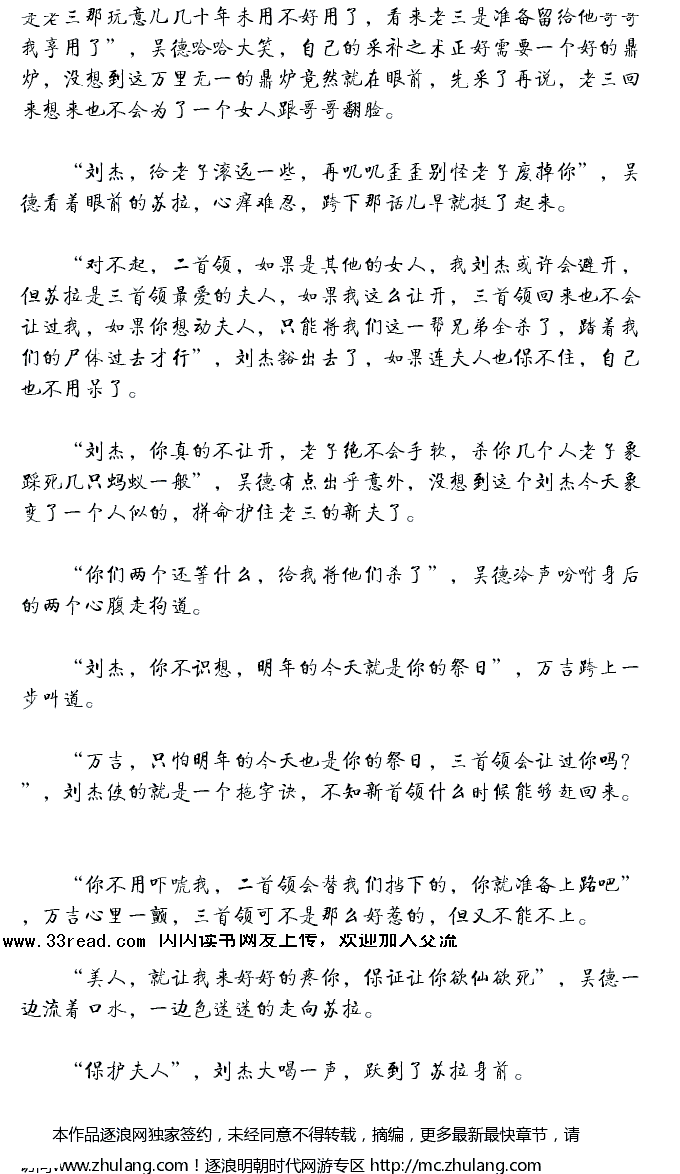 是老三那玩意儿几十年未用不好用了，看来老三是准备留给他哥哥
我享用了”，吴德哈哈大笑，自己的采补之术正好需要一个好的鼎
炉，没想到这万里无一的鼎炉竟然就在眼前，先采了再说，老三回
来想来也不会为了一个女人跟哥哥翻脸。
“刘杰，给老子滚远一些，再叽叽歪歪别怪老子废掉你”，吴
德看着眼前的苏拉，心痒难忍，跨下那话儿早就挺了起来。
“对不起，二首领，如果是其他的女人，我刘杰或许会避开，
但苏拉是三首领最爱的夫人，如果我这么让开，三首领回来也不会
让过我，如果你想动夫人，只能将我们这一帮兄弟全杀了，踏着我
们的尸体过去才行”，刘杰豁出去了，如果连夫人也保不住，自己
也不用呆了。
“刘杰，你真的不让开，老子绝不会手软，杀你几个人老子象
踩死几只蚂蚁一般”，吴德有点出乎意外，没想到这个刘杰今天象
变了一个人似的，拼命护住老三的新夫了。
“你们两个还等什么，给我将他们杀了”，吴德冷声吩咐身后
的两个心腹走狗道。
“刘杰，你不识想，明年的今天就是你的祭日”，万吉跨上一
步叫道。
“万吉，只怕明年的今天也是你的祭日，三首领会让过你吗？
”，刘杰使的就是一个拖字诀，不知新首领什么时候能够赶回来。
“你不用吓唬我，二首领会替我们挡下的，你就准备上路吧”
，万吉心里一颤，三首领可不是那么好惹的，但又不能不上。
www.33read.com 闪闪读书网友上传，欢迎加入交流
“美人，就让我来好好的疼你，保证让你欲仙欲死”，吴德一
边流着口水，一边色迷迷的走向苏拉。
“保护夫人”，刘杰大喝一声，跃到了苏拉身前。
本作品逐浪网独家签约，未经同意不得转载，摘编，更多最新最快章节，请
访问www.zhulang.com！逐浪明朝时代网游专区 http://mc.zhulang.com